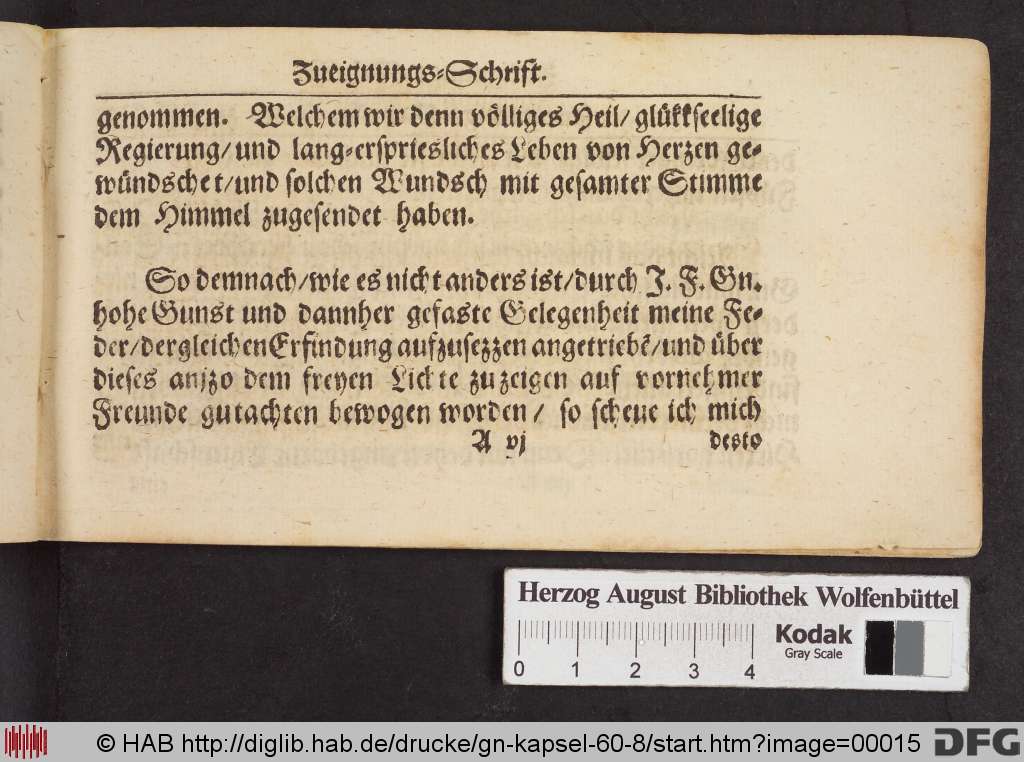 Zueignungs-Schrift.
genommen. Welchem wir denn völliges Heil/ glükkseelige
Regierung/ und lang-erspriesliches Leben von Herzen ge-
wündschet/ und solchen Wundsch mit gesamter Stimme
dem Himmel zugesendet haben.
So demnach/ wie es nicht anders ist/ durch J. F. Gn.
hohe Gunst und dannher gefaste Gelegenheit meine Fe-
der/ dergleichen Erfindung aufzusezzen angetriebē/ und über
dieses anjzo dem freyen Lichte zu zeigen auf vornehmer
Freunde gutachten bewogen worden/ so scheue ich mich
A vj desto
Herzog August Bibliothek Wolfenbüttel
Kodak
Gray Scale
0 1 2 3 4
© HAB http://diglib.hab.de/drucke/gn-kapsel-60-8/start.htm?image=00015
DFG